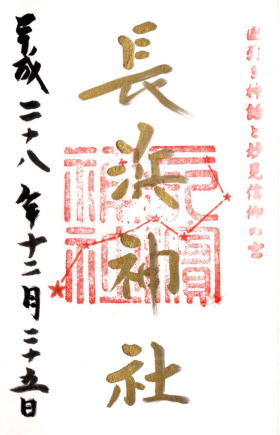 国引き神話と妙見信仰の宮
長浜神社
平成二十八年十二月二十五日